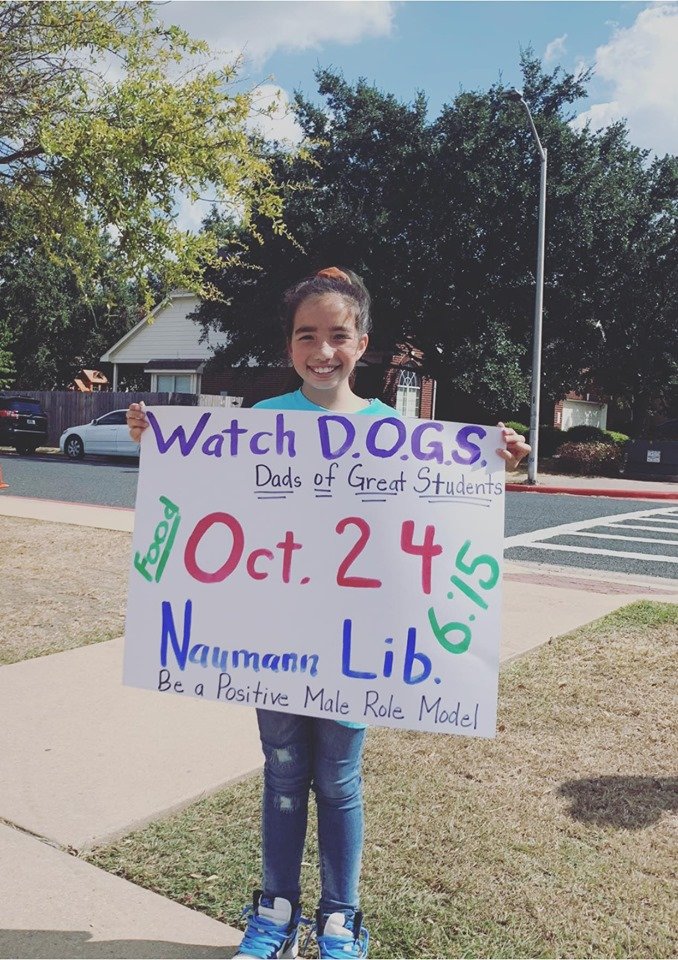 Watch D.O.G.S.
Dads of Great Students
Food
Oct. 24
6:15
Naumann Lib.
Be a Positive Male Role Model